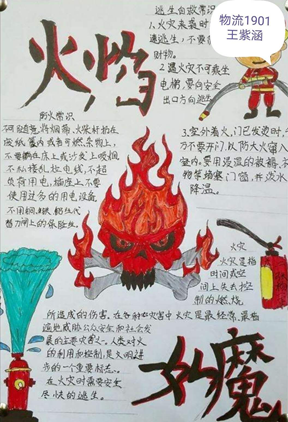 物流1901
王紫涵
火焰
逃生自救常识
1.火灾来袭时
速逃生,不要
财物。
2.遇火灾不可乘坐
电梯,要向安全
出口方向逃生
3.室外着火,门已发烫时,千
万不要开门,以防大火窜入
室内。要用浸湿的被褥、衣
物等堵塞门窗,并泼水
降温。
防火常识
不要围乱
在床上或沙发上吸烟
不乱接乱拉电线,不超
负荷用电,插座上不要
使用过多的用电设备,
不用铜、
火灾
火灾是指
时间或空
间上失去控
制的燃烧
所造成的伤害。在各种灾害中火灾是最经常、最普
遍地威胁公众安全和社会发
展的主要灾害之一。人类对火
的利用和控制,是文明进
步的一个重要标志。
在火灾时需要安全
尽快的逃生。
魔